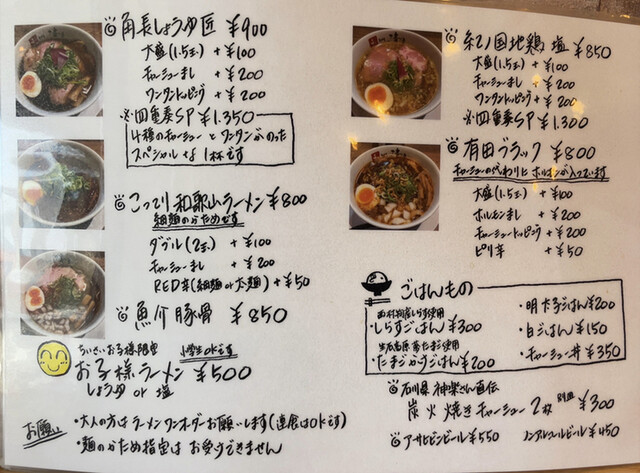 角長しょうゆ匠 ¥900
大盛(1.5玉) +¥100
チャーシューまし +¥200
ワンタントッピング +¥200
※四重奏SP ¥1.350
4種のチャーシューとワンタンがのった
スペシャルな1杯です
こってり和歌山ラーメン ¥800
細麺のかためです
ダブル(2玉) +¥100
チャーシューまし +¥200
RED辛(細麺or太麺) +¥50
魚介豚骨 ¥850
ちいさいお子様限定 小学生OKです
お子様ラーメン ¥500
しょうゆ or 塩
お願い
・大人の方はラーメンワンオーダーお願いします(連食はOKです)
・麺のかため指定はお受けできません
紀ノ国地鶏 塩 ¥850
大盛(1.5玉) +¥100
チャーシューまし +¥200
ワンタントッピング +¥200
※四重奏SP ¥1.300
有田ブラック ¥800
チャーシューの代わりにホルモンが入っています
大盛(1.5玉) +¥100
ホルモンまし +¥200
チャーシュートッピング +¥200
ピリ辛 +¥50
ごはんもの
しらす使用
・しらすごはん ¥300
たまご使用
・たまごかけごはん ¥200
・明太子ごはん ¥200
・白ごはん ¥150
・チャーシュー丼 ¥350
石川県 神楽さん直伝
炭火焼きチャーシュー 2枚 別皿 ¥300
アサヒビンビール ¥550 ノンアルコールビール ¥450